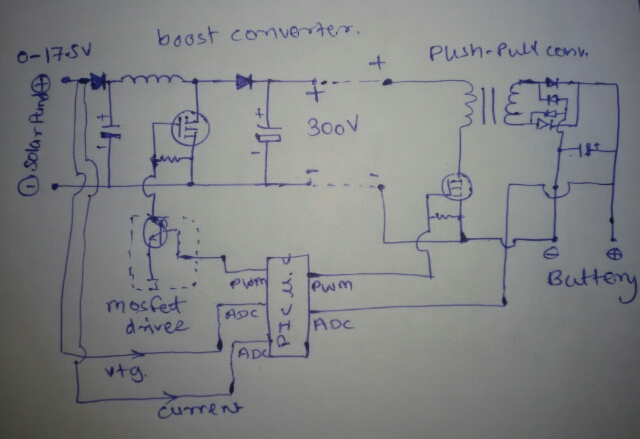 boost converter.
0-17.5V
Push-Pull conv.
+
+
+
+
300V
-
-
-
-
⊕ Solar Panel
⊖
mosfect
driver
PWM
ADC
ADC
PIC μ.c
PWM
ADC
⊖
⊕
Buttery
vtg.
current